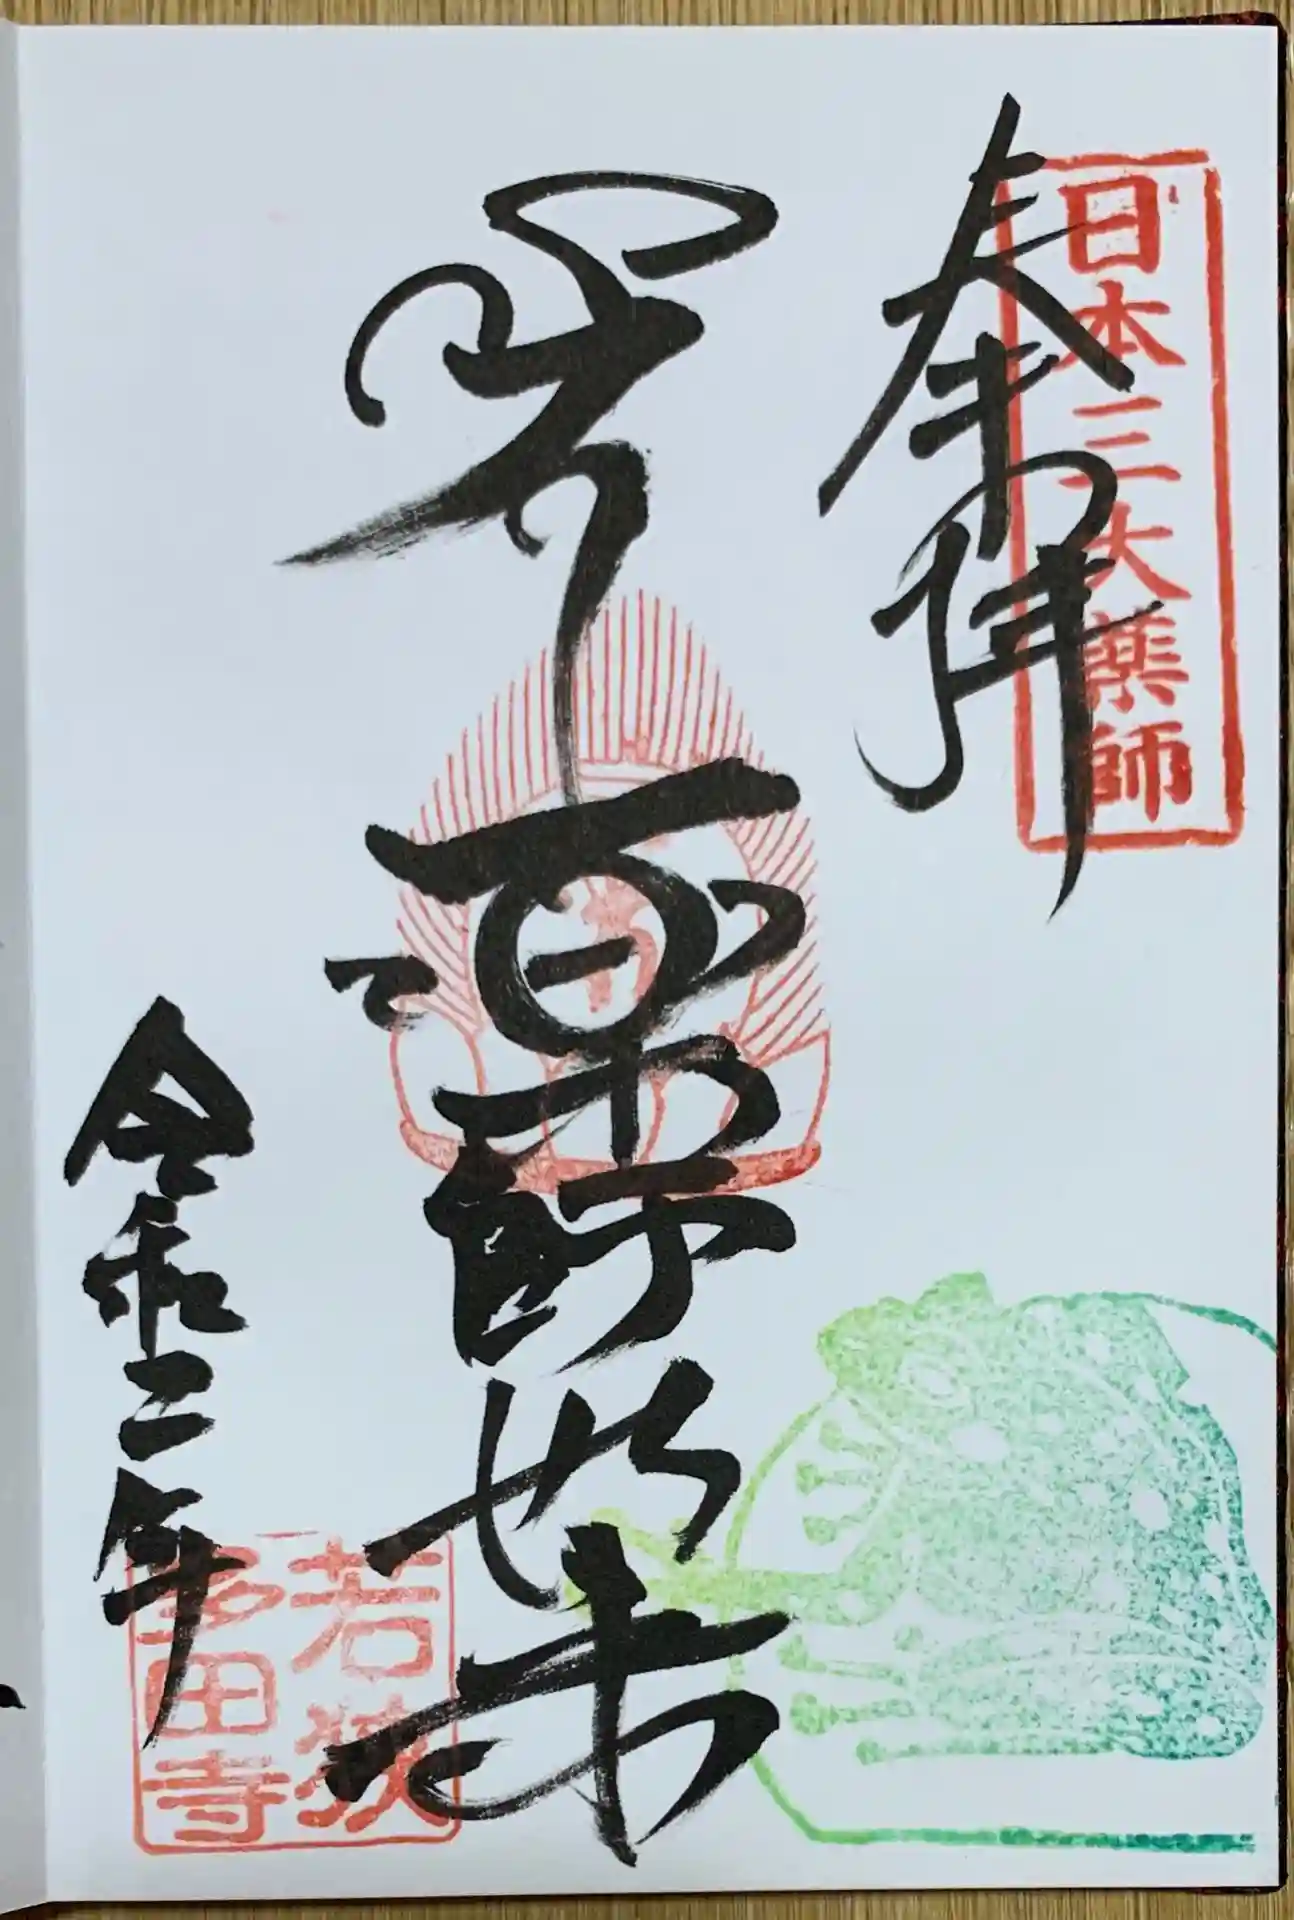 日本三大薬師
奉拝
薬師如来
令和二年
若狭
多田寺